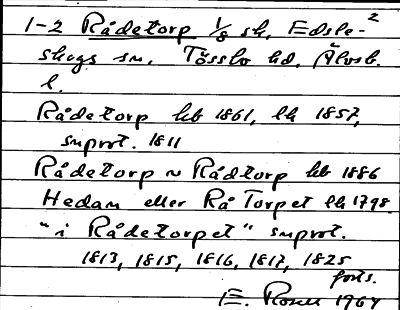 1-2 Rådetorp 1/8 sk. Edsle-²
skogs sn. Tössbo hd, Älvsb.
l.
Rådetorp hb 1861, lk 1857,
snprot. 1811
Rådetorp ~ Rådtorp hb 1886
Hedan eller Rå Torpet lk 1798
"i Rådetorpet" snprot.
1813, 1815, 1816, 1817, 1825
forts.
E. Rosell 1964